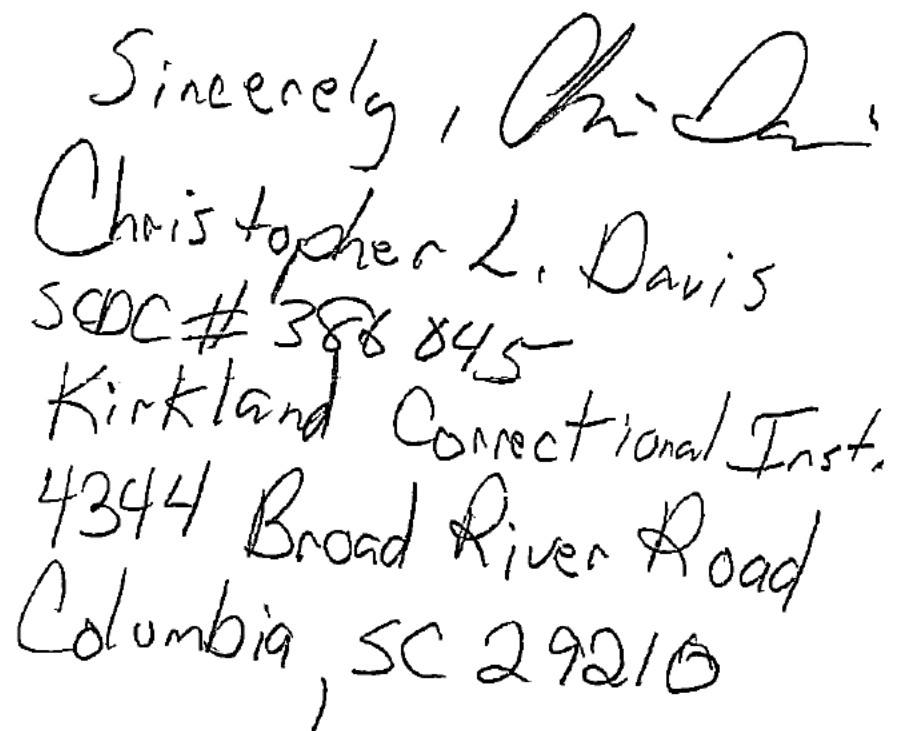 Sincerely, Chris Davis
Christopher L. Davis
SCDC# 388845
Kirkland Correctional Inst.
4344 Broad River Road
Columbia, SC 29210